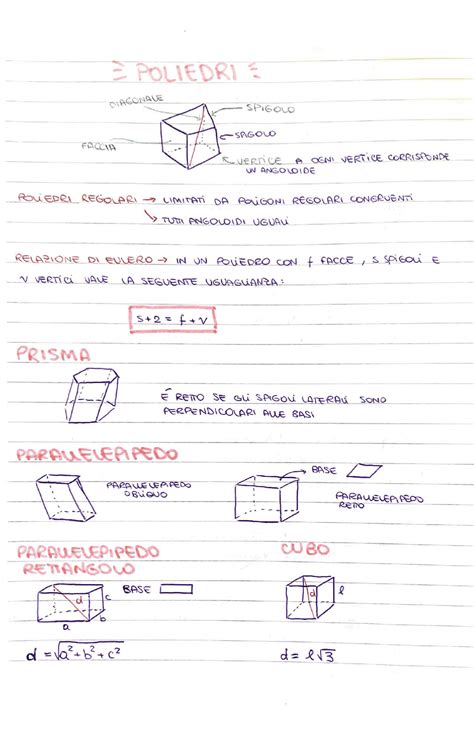 POLIEDRI
DIAGONALE
SPIGOLO
SPIGOLO
FACCIA
VERTICE A OGNI VERTICE CORRISPONDE
UN ANGOLOIDE
POLIEDRI REGOLARI → LIMITATI DA POLIGONI REGOLARI CONGRUENTI
↳ TUTTI ANGOLOIDI UGUALI
RELAZIONE DI EULERO → IN UN POLIEDRO CON f FACCE, S SPIGOLI E
V VERTICI VALE LA SEGUENTE UGUAGLIANZA:
s+2 = f+v
PRISMA
É RETTO SE GLI SPIGOLI LATERALI SONO
PERPENDICOLARI ALLE BASI
PARALLELEPIPEDO
PARALLELEPIPEDO
OBLIQUO
→ BASE
PARALLELEPIPEDO
RETTO
PARALLELEPIPEDO
RETTANGOLO
CUBO
BASE
d
c
b
a
d
l
d = √a²+b²+c²
d = l√3